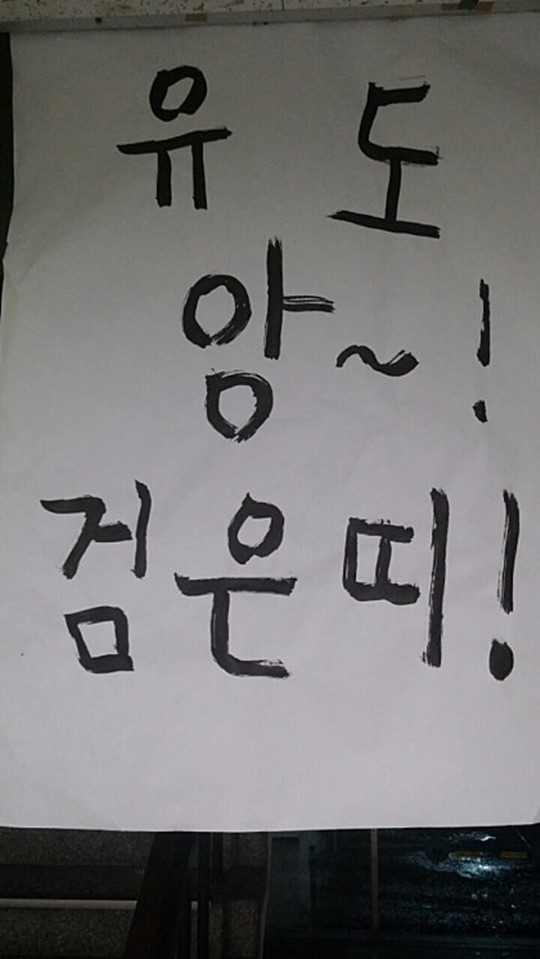 유도
앙~!
검은띠!